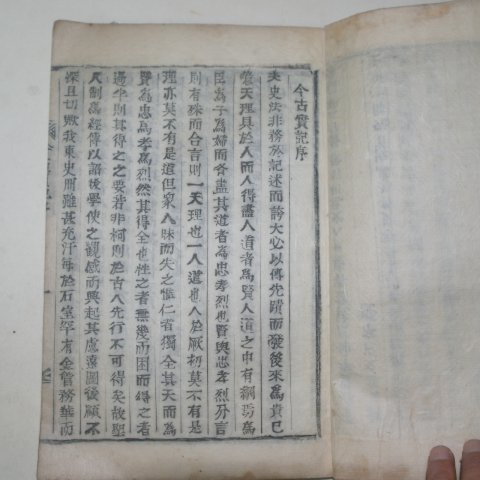 今古實記序
夫史法非務於記述而誇大必以傳先蹟而發後來爲貴已
天理具於人而人得盡人道者爲賢人道之中有綱焉爲
因爲子爲婦而各盡其道者爲忠孝烈也賢與忠孝烈分言
則有殊而合言則一天理也一人道也人於厥初莫不有是
理亦莫不有是道但衆人昧而失之惟仁者獨全其天而爲
賢爲忠爲孝爲烈然其得全也性之者無幾而困而得之者
過半則其得之之要若非柯則於古人先行不可得矣故聖
人制爲經傳以詔後學使之觀感而興起其慮遠圖後顧不
深且切歟我東史冊雖甚充汗每於石室罕有金管務華而